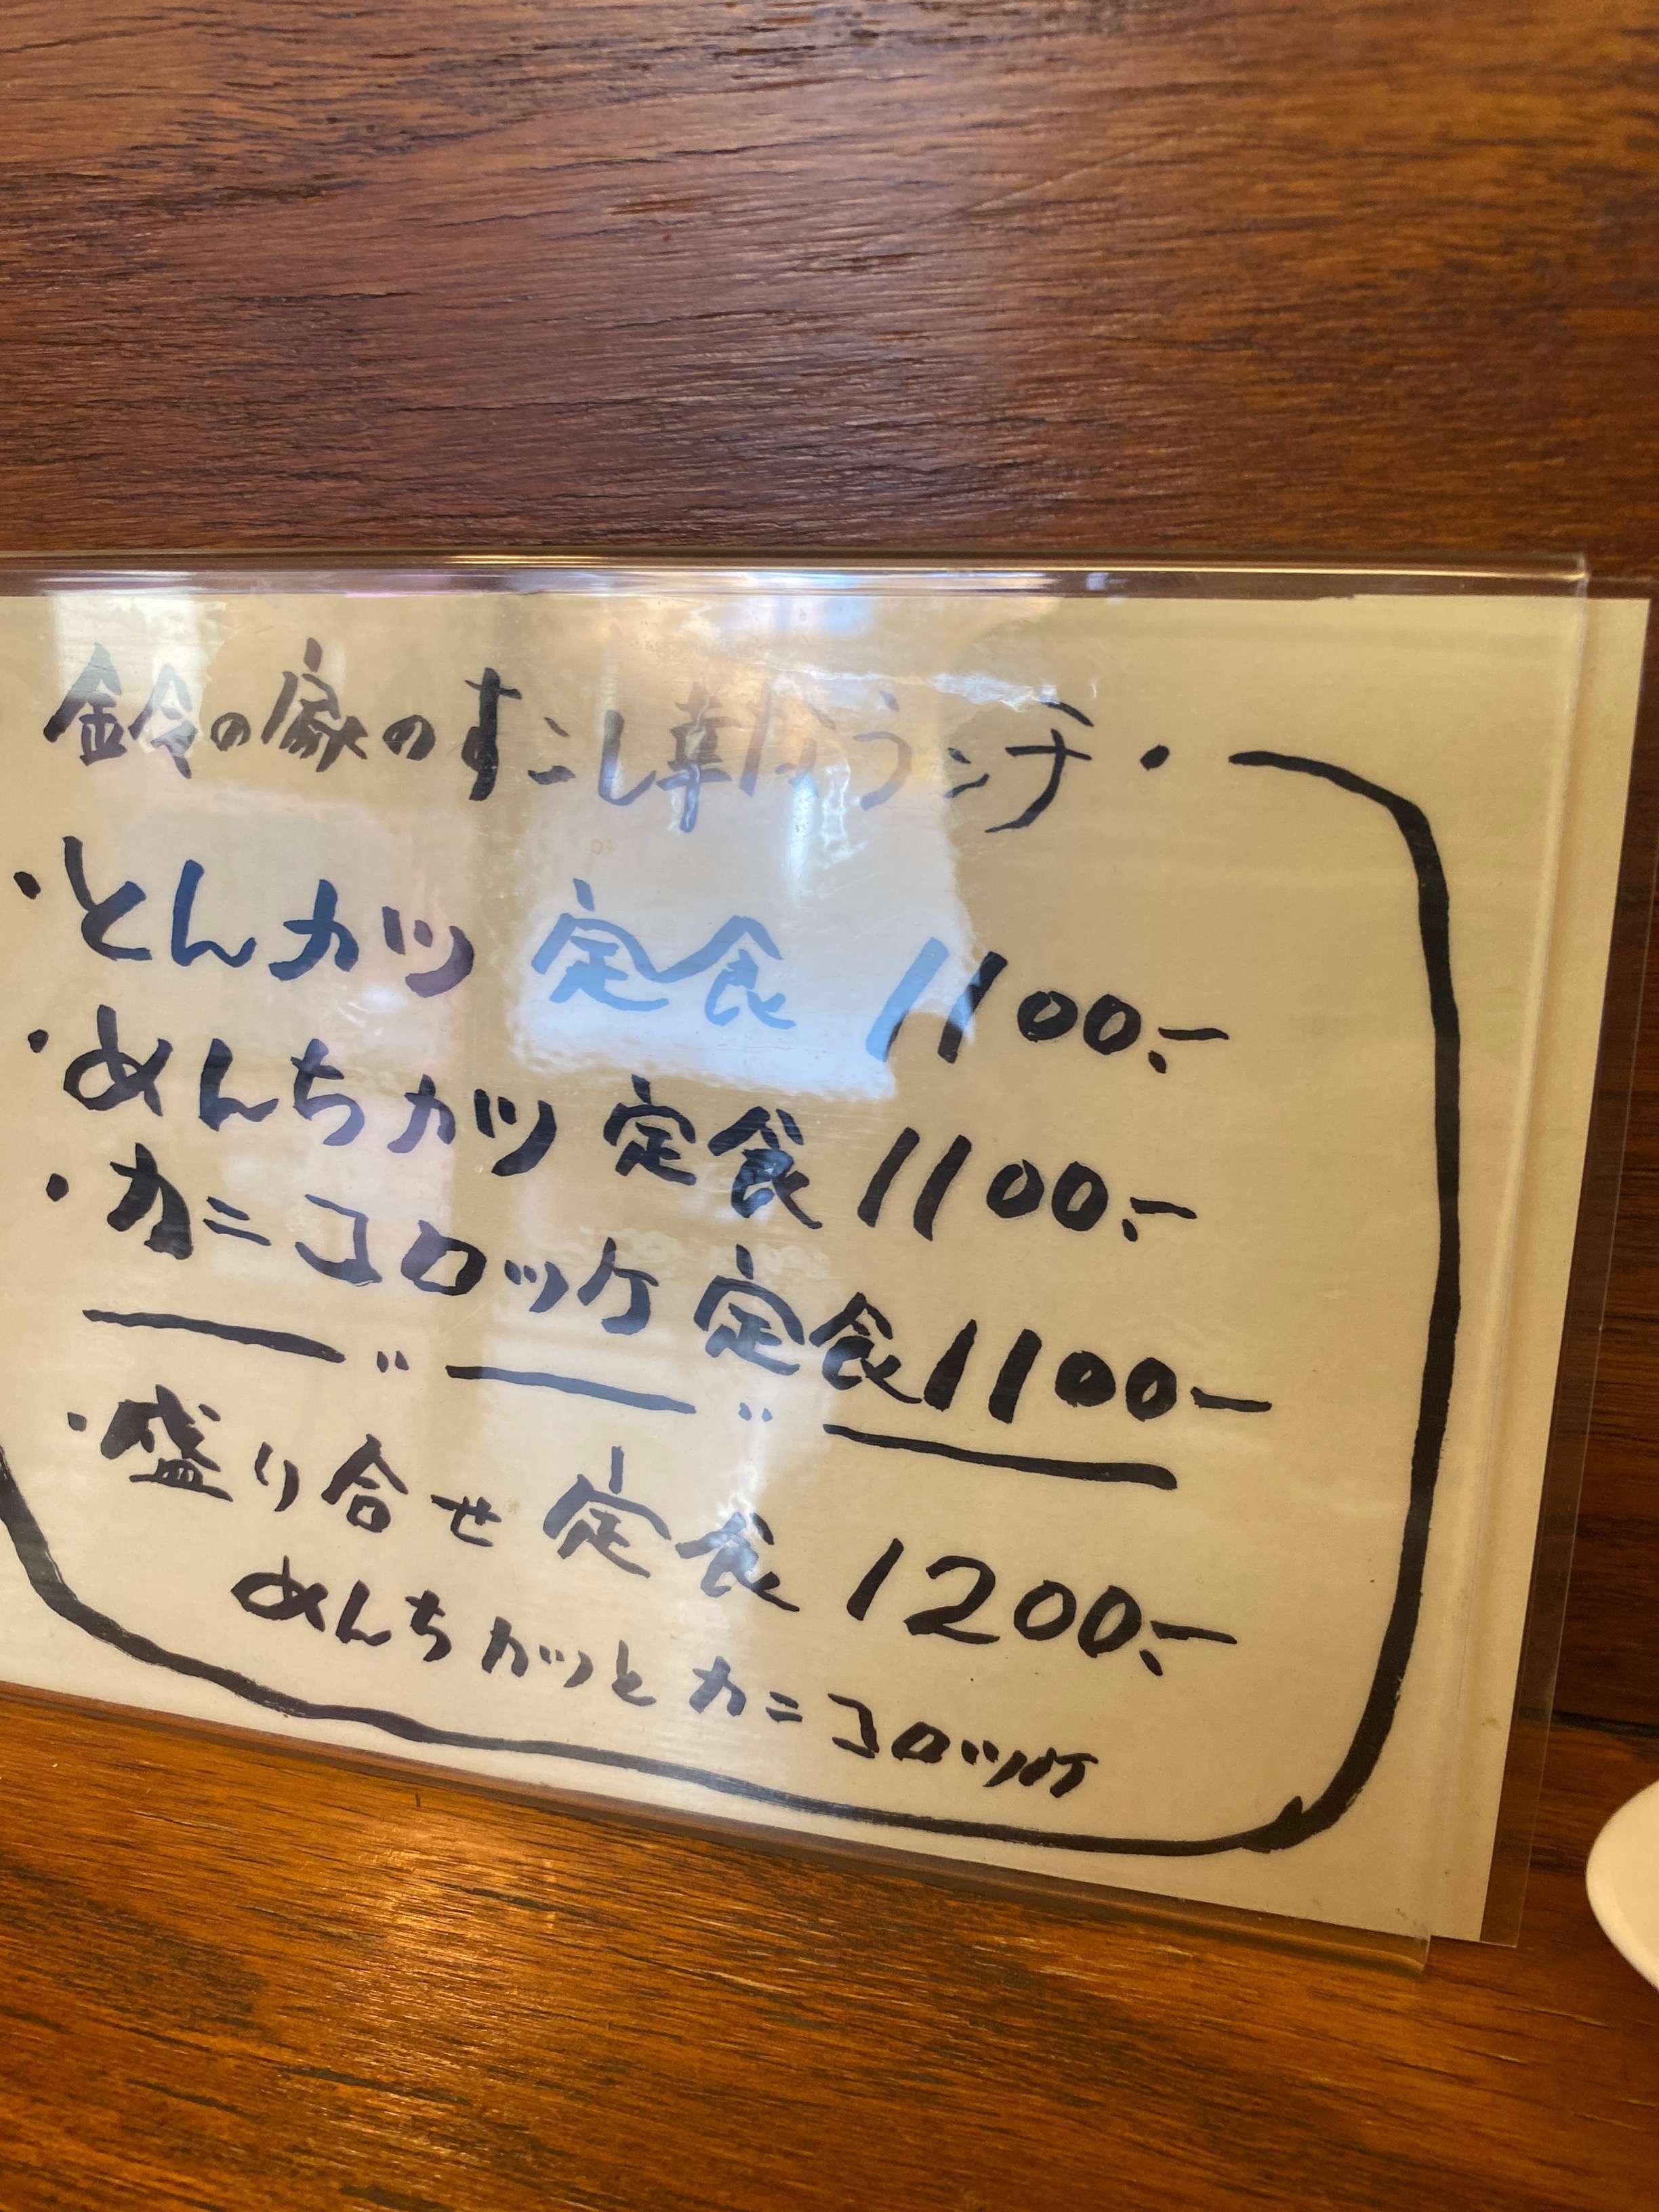 鈴の家のすこし華なランチ・
・とんカツ 定食 1100.-
・めんちカツ 定食 1100.-
・カニコロッケ 定食 1100-
・盛り合せ 定食 1200.-
めんちカツとカニコロッケ